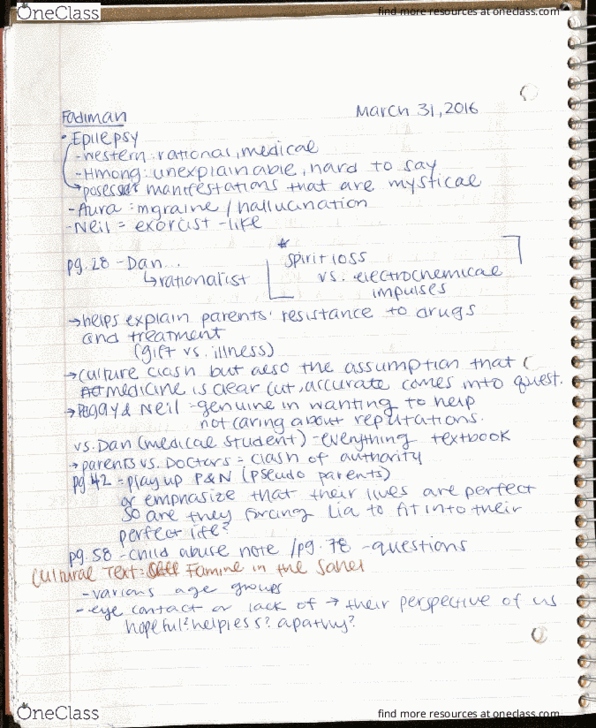 OneClass
find more resources at oneclass.com
Fadiman March 31, 2016
• Epilepsy
- western: rational, medical
- Hmong: unexplainable, hard to say
manifestations that are mystical
- Aura: migraine / hallucination
- Neil = exorcist-like
pg. 28 - Dan...
↳ rationalist
* spirit loss
vs. electrochemical
impulses
→ helps explain parents' resistance to drugs
and treatment
(gift vs. illness)
→ culture clash but also the assumption that
medicine is clear cut, accurate comes into quest.
→ Peggy & Neil - genuine in wanting to help
not caring about reputations.
vs. Dan (medical student) - everything textbook
→ parents vs. Doctors = clash of authority
pg. 42 - play up P&N (pseudo parents)
or emphasize that their lives are perfect
so are they forcing Lia to fit into their
perfect life?
pg. 58 - child abuse note / pg. 78 - questions
Cultural Text: Famine in the Sahel
- various age groups
- eye contact or lack of → their perspective of us
hopeful? helpless? apathy?
OneClass
find more resources at oneclass.com